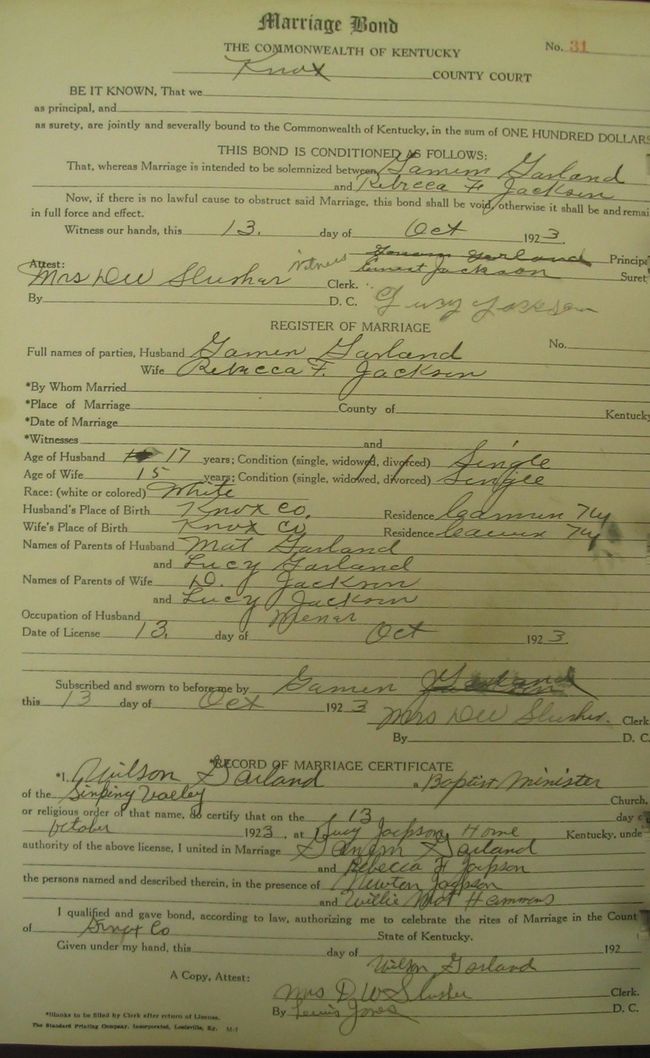 Marriage Bond
No. 31
THE COMMONWEALTH OF KENTUCKY
Knox COUNTY COURT
BE IT KNOWN, That we
as principal, and
as surety, are jointly and severally bound to the Commonwealth of Kentucky, in the sum of ONE HUNDRED DOLLARS
THIS BOND IS CONDITIONED AS FOLLOWS:
That, whereas Marriage is intended to be solemnized between Gamem Garland
and Rebecca F Jackson
Now, if there is no lawful cause to obstruct said Marriage, this bond shall be void, otherwise it shall be and remai
in full force and effect.
Witness our hands, this 13. day of Oct 1923.
witness Garland Principa
Attest: Jackson Suret
Mrs DW Slusher Clerk.
By D. C. Jackson
REGISTER OF MARRIAGE
No.
Full names of parties, Husband Gamen Garland
Wife Rebecca F. Jackson
*By Whom Married
*Place of Marriage County of Kentucky
*Date of Marriage
*Witnesses and
Age of Husband 17 years; Condition (single, widowed, divorced) Single
Age of Wife 15 years; Condition (single, widowed, divorced) Single
Race: (white or colored) White
Husband's Place of Birth Knox Co. Residence Ky
Wife's Place of Birth Knox Co Residence Ky
Names of Parents of Husband Mat Garland
and Lucy Garland
Names of Parents of Wife D. Jackson
and Lucy Jackson
Occupation of Husband Miner
Date of License 13. day of Oct 1923.
Subscribed and sworn to before me by Gamen
this 13 day of Oct 1923
Mrs DW Slusher. Clerk
By D. C.
*RECORD OF MARRIAGE CERTIFICATE
*I, Wilson Garland a Baptist Minister
of the Sinking Valley Church,
or religious order of that name, do certify that on the 13 day o
October 1923, at Lucy Jacksons Home Kentucky, unde
authority of the above license, I united in Marriage Garland
and Rebecca F Jackson
the persons named and described therein, in the presence of Newton Jackson
and Willie Mat Hammons
I qualified and gave bond, according to law, authorizing me to celebrate the rites of Marriage in the Count
of Knox Co State of Kentucky.
Given under my hand, this day of 192
Wilson Garland
A Copy, Attest:
Mrs D W Slusher Clerk.
By Lewis Jones D. C.
*Blanks to be filled by Clerk after return of License.
The Standard Printing Company, Incorporated, Louisville, Ky. M-1